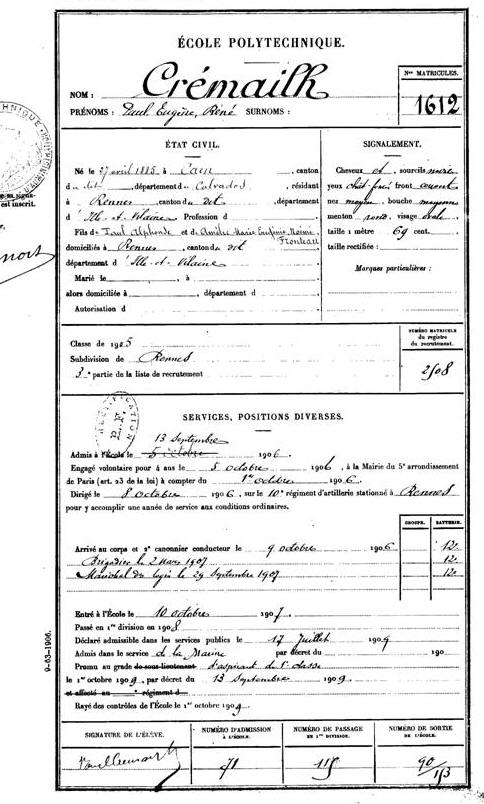 ÉCOLE POLYTECHNIQUE.
NOM : Crémailh
PRÉNOMS : Paul, Eugène, René SURNOMS :
Nos MATRICULES.
1612
ÉTAT CIVIL.
Né le 27 avril 1885 à Caen, canton
du dit, département du Calvados, résidant
à Rennes, canton du dit, département
d'Ille-et-Vilaine Profession d
Fils de Paul Alphonse et d'Amélie Marie Eugénie
domiciliés à Rennes, canton du dit
département d'Ille-et-Vilaine
Marié le , à
alors domiciliée à , département d
Autorisation d
SIGNALEMENT.
Cheveux et sourcils noirs
yeux front
nez moyen, bouche moyenne
menton rond, visage ovale
taille 1 mètre 69 cent.
taille rectifiée :
Marques particulières :
Classe de 1905
Subdivision de Rennes
3e partie de la liste de recrutement
NUMÉRO MATRICULE
du registre
du recrutement.
2508
SERVICES, POSITIONS DIVERSES.
13 Septembre
Admis à l'École le 5 octobre 1906.
Engagé volontaire pour 4 ans le 5 octobre 1906, à la Mairie du 5e arrondissement
de Paris (art. 23 de la loi) à compter du 1er octobre 1906.
Dirigé le 8 octobre 1906, sur le 10e régiment d'artillerie stationné à Rennes
pour y accomplir une année de service aux conditions ordinaires.
GROUPE. BATTERIE.
Arrivé au corps et 2e canonnier conducteur le 9 octobre 1906 12e
Brigadier le 2 mars 1907 12e
Maréchal des logis le 29 Septembre 1907 12e
Entré à l'École le 10 octobre 1907.
Passé en 1re division en 1908
Déclaré admissible dans les services publics le 17 Juillet 1909
Admis dans le service de la Marine par décret du 190
Promu au grade de sous-lieutenant d'aspirant de 1e classe
le 1er octobre 1909, par décret du 13 Septembre 1909.
et affecté au régiment d
Rayé des contrôles de l'École le 1er octobre 1909.
9-63-1906.
SIGNATURE DE L'ÉLÈVE.
NUMÉRO D'ADMISSION
À L'ÉCOLE.
71
NUMÉRO DE PASSAGE
EN 1re DIVISION.
115
NUMÉRO DE SORTIE
DE L'ÉCOLE.
90/153
est inscrit.